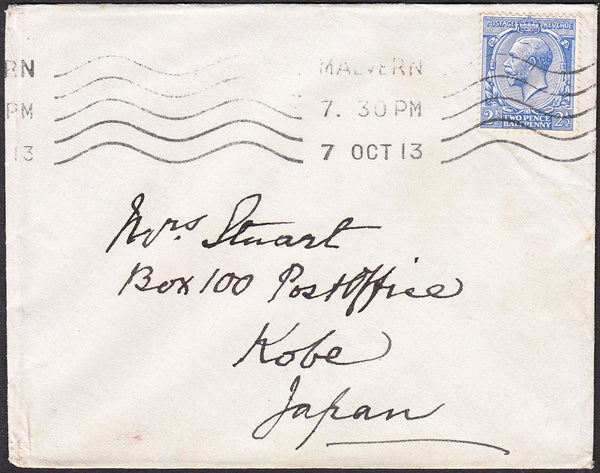 RN
MALVERN
PM
7. 30 PM
13
7 OCT 13
POSTAGE REVENUE
2½ TWO PENCE HALFPENNY 2½
Mrs Stuart
Box 100 Post Office
Kobe
Japan